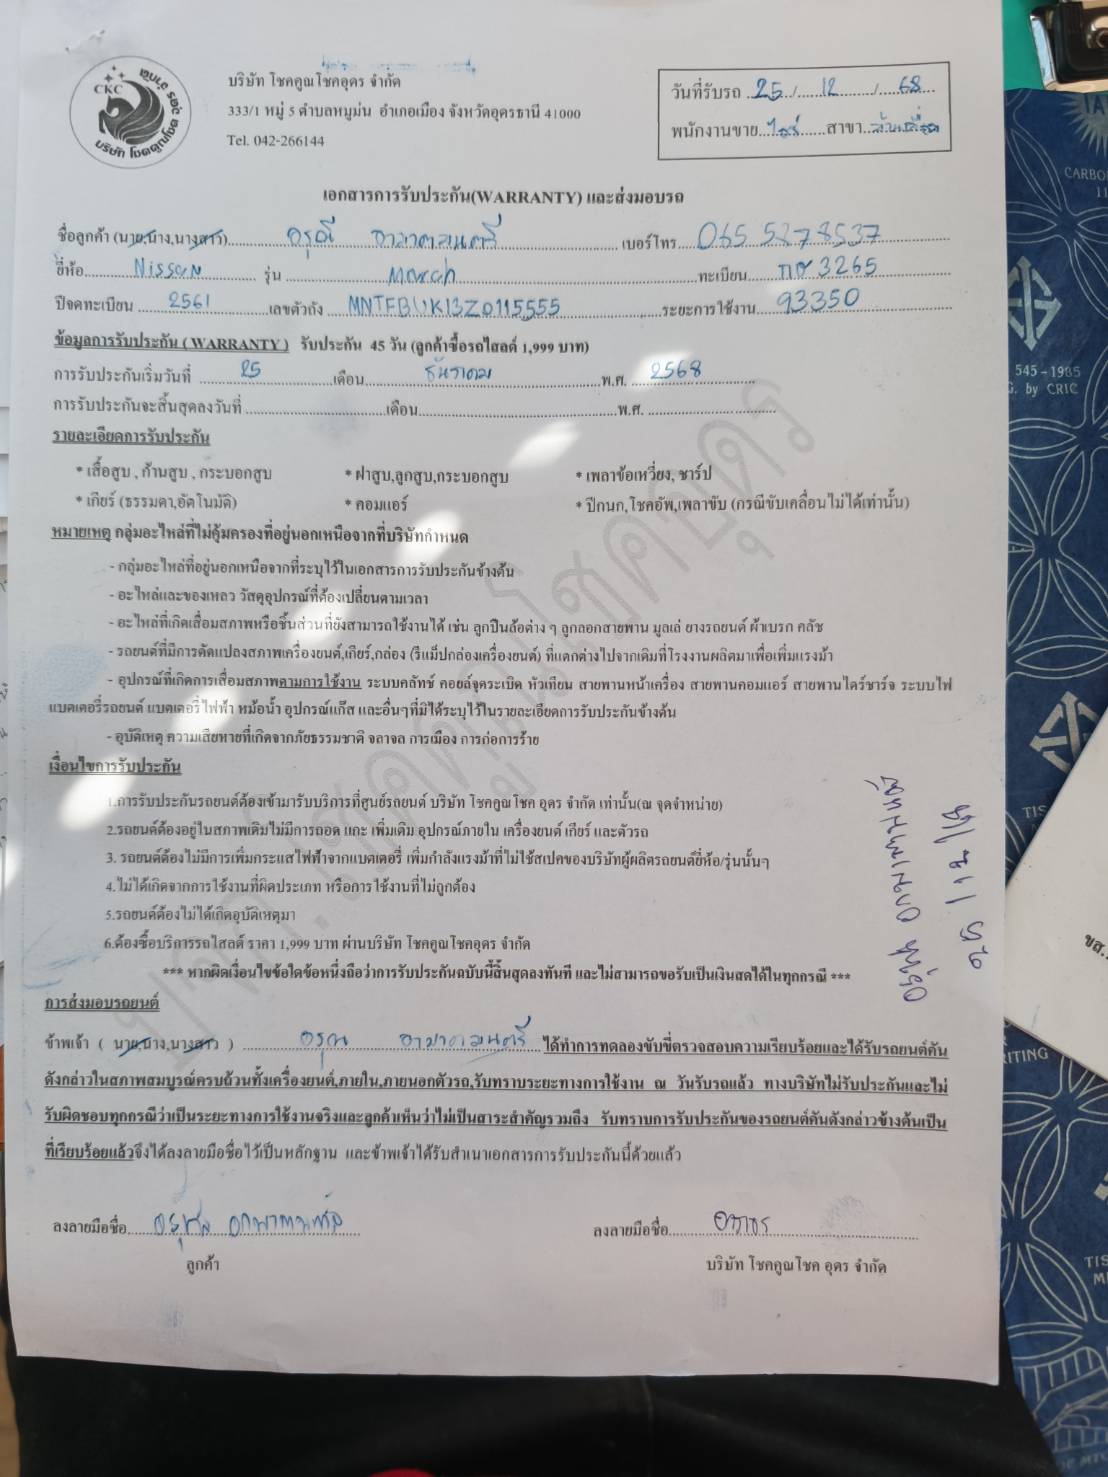 CKC
บริษัท โชคคูณโชค อุดร จำกัด
บริษัท โชคคูณโชคอุดร จำกัด
333/1 หมู่ 5 ตำบลหมูม่น อำเภอเมือง จังหวัดอุดรธานี 41000
Tel. 042-266144
วันที่รับรถ 25 / 12 / 68
พนักงานขาย...ไตร์......สาขา
เอกสารการรับประกัน(WARRANTY) และส่งมอบรถ
ชื่อลูกค้า (นาย,นาง,นางสาว) อรุณี อามาตมนตรี เบอร์โทร 065 5378537
ยี่ห้อ Nissan รุ่น March ทะเบียน 3265
ปีจดทะเบียน 2561 เลขตัวถัง MNTFBUK13Z0115555 ระยะการใช้งาน 93350
ข้อมูลการรับประกัน ( WARRANTY ) รับประกัน 45 วัน (ลูกค้าซื้อรถไสลด์ 1,999 บาท)
การรับประกันเริ่มวันที่ 25 เดือน ธันวาคม พ.ศ. 2568
การรับประกันจะสิ้นสุดลงวันที่ เดือน พ.ศ.
รายละเอียดการรับประกัน
* เสื้อสูบ , ก้านสูบ , กระบอกสูบ * ฝาสูบ,ลูกสูบ,กระบอกสูบ * เพลาข้อเหวี่ยง, ชาร์ป
* เกียร์ (ธรรมดา,อัตโนมัติ) * คอมแอร์ * ปีกนก,โชคอัพ,เพลาขับ (กรณีขับเคลื่อนไม่ได้เท่านั้น)
หมายเหตุ กลุ่มอะไหล่ที่ไม่คุ้มครองที่อยู่นอกเหนือจากที่บริษัทกำหนด
- กลุ่มอะไหล่ที่อยู่นอกเหนือจากที่ระบุไว้ในเอกสารการรับประกันข้างต้น
- อะไหล่และของเหลว วัสดุอุปกรณ์ที่ต้องเปลี่ยนตามเวลา
- อะไหล่ที่เกิดเสื่อมสภาพหรือชิ้นส่วนที่ยังสามารถใช้งานได้ เช่น ลูกปืนล้อต่าง ๆ ลูกลอกสายพาน มูลเล่ ยางรถยนต์ ผ้าเบรก คลัช
- รถยนต์ที่มีการดัดแปลงสภาพเครื่องยนต์,เกียร์,กล่อง (รีแม็ปกล่องเครื่องยนต์) ที่แตกต่างไปจากเดิมที่โรงงานผลิตมาเพื่อเพิ่มแรงม้า
- อุปกรณ์ที่เกิดการเสื่อมสภาพตามการใช้งาน ระบบคลัทช์ คอยล์จุดระเบิด หัวเทียน สายพานหน้าเครื่อง สายพานคอมแอร์ สายพานไดร์ชาร์จ ระบบไฟ
แบตเตอรี่รถยนต์ แบตเตอรี่ไฟฟ้า หม้อน้ำ อุปกรณ์แก๊ส และอื่นๆที่มิได้ระบุไว้ในรายละเอียดการรับประกันข้างต้น
- อุบัติเหตุ ความเสียหายที่เกิดจากภัยธรรมชาติ จลาจล การเมือง การก่อการร้าย
เงื่อนไขการรับประกัน
1.การรับประกันรถยนต์ต้องเข้ามารับบริการที่ศูนย์รถยนต์ บริษัท โชคคูณโชค อุดร จำกัด เท่านั้น(ณ จุดจำหน่าย)
2.รถยนต์ต้องอยู่ในสภาพเดิมไม่มีการถอด แกะ เพิ่มเติม อุปกรณ์ภายใน เครื่องยนต์ เกียร์ และตัวรถ
3. รถยนต์ต้องไม่มีการเพิ่มกระแสไฟฟ้าจากแบตเตอรี่ เพิ่มกำลังแรงม้าที่ไม่ใช้สเปคของบริษัทผู้ผลิตรถยนต์ยี่ห้อ/รุ่นนั้นๆ
4.ไม่ได้เกิดจากการใช้งานที่ผิดประเภท หรือการใช้งานที่ไม่ถูกต้อง
5.รถยนต์ต้องไม่ได้เกิดอุบัติเหตุมา
6.ต้องซื้อบริการรถไสลด์ ราคา 1,999 บาท ผ่านบริษัท โชคคูณโชคอุดร จำกัด
*** หากผิดเงื่อนไขข้อใดข้อหนึ่งถือว่าการรับประกันฉบับนี้สิ้นสุดลงทันที และไม่สามารถขอรับเป็นเงินสดได้ในทุกกรณี ***
การส่งมอบรถยนต์
ข้าพเจ้า ( นาย,นาง,นางสาว ) อรุณ อามาตมนตรี ได้ทำการทดลองขับขี่ตรวจสอบความเรียบร้อยและได้รับรถยนต์คัน
ดังกล่าวในสภาพสมบูรณ์ครบถ้วนทั้งเครื่องยนต์,ภายใน,ภายนอกตัวรถ,รับทราบระยะทางการใช้งาน ณ วันรับรถแล้ว ทางบริษัทไม่รับประกันและไม่
รับผิดชอบทุกกรณีว่าเป็นระยะทางการใช้งานจริงและลูกค้าเห็นว่าไม่เป็นสาระสำคัญรวมถึง รับทราบการรับประกันของรถยนต์คันดังกล่าวข้างต้นเป็น
ที่เรียบร้อยแล้วจึงได้ลงลายมือชื่อไว้เป็นหลักฐาน และข้าพเจ้าได้รับสำเนาเอกสารการรับประกันนี้ด้วยแล้ว
ลงลายมือชื่อ
ลูกค้า
ลงลายมือชื่อ
บริษัท โชคคูณโชค อุดร จำกัด
บจก.โชคคูณโชคอุดร
25 / 12 / 68
CARBO
545-1985
by CRIC
TIS
ขส.
RITING